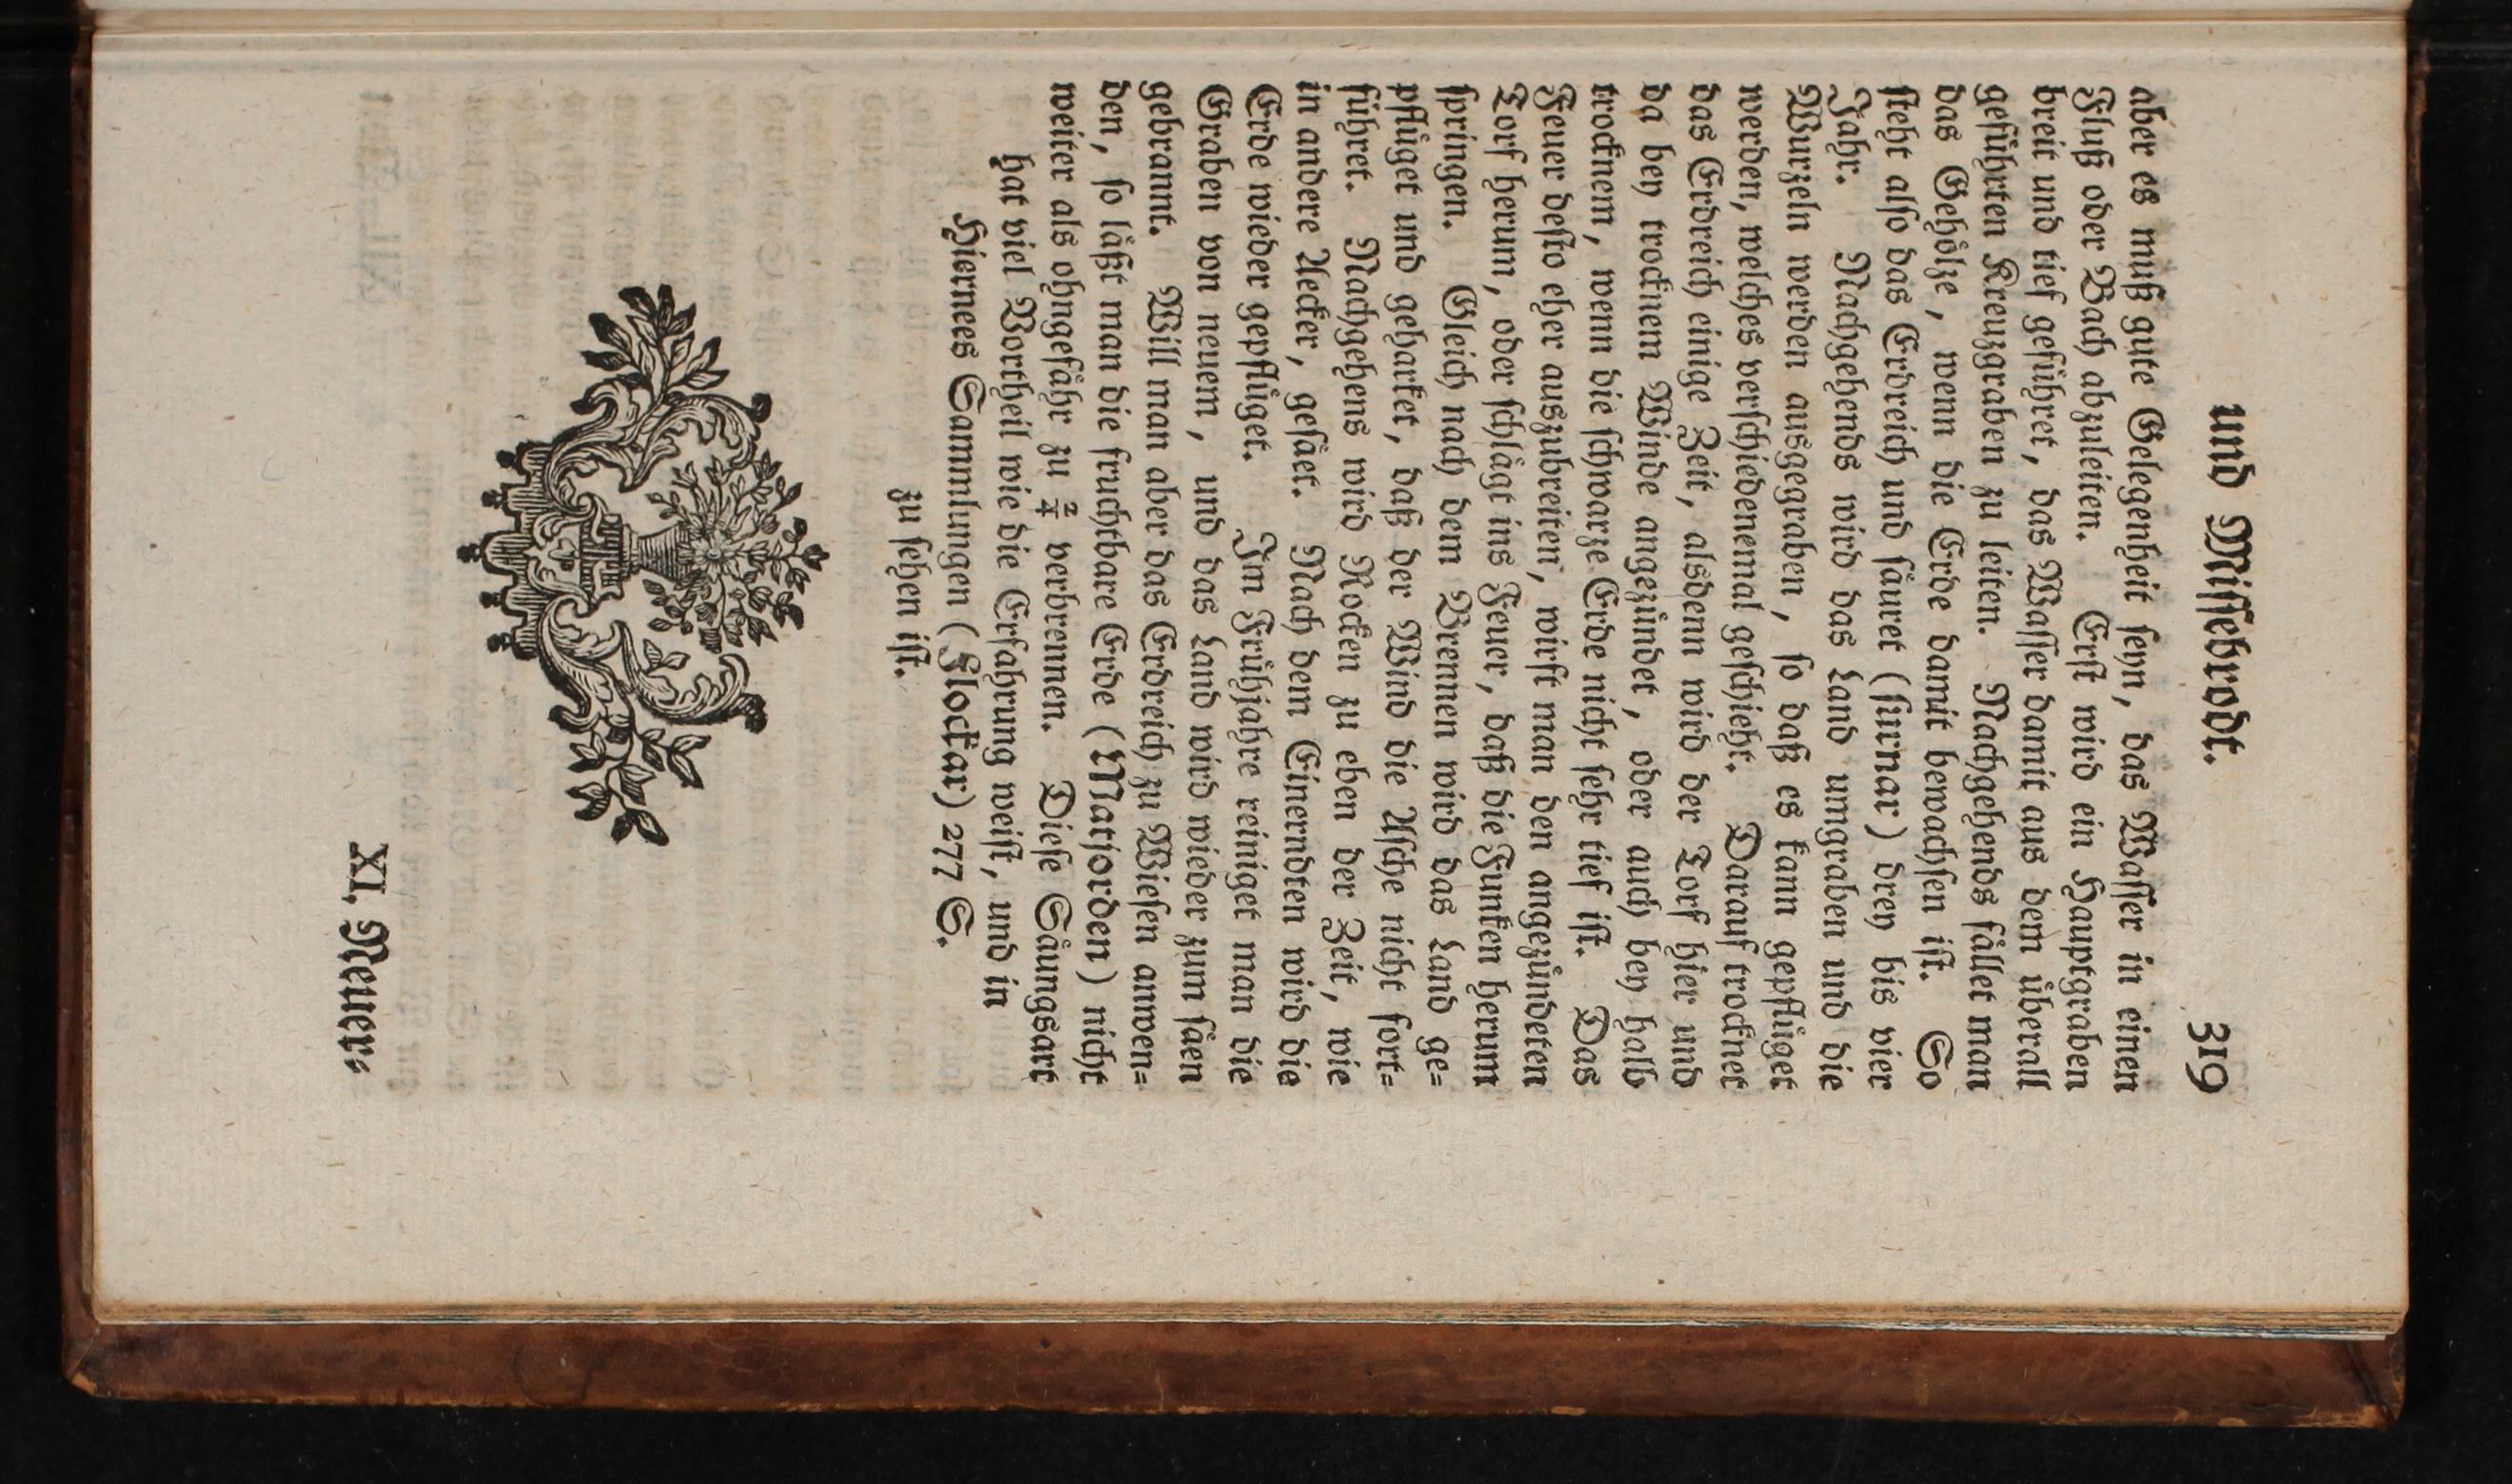 und Miſſebrodt. 319
aber es muß gute Gelegenheit ſeyn, das Waſſer in einen
Fluß oder Bach abzuleiten. Erſt wird ein Hauptgraben
breit und tief geführet, das Waſſer damit aus dem überall
geführten Kreuzgraben zu leiten. Nachgehends fället man
das Gehölze, wenn die Erde damit bewachſen iſt. So
ſteht alſo das Erdreich und ſäuret (ſurnar) drey bis vier
Jahr. Nachgehends wird das Land umgraben und die
Wurzeln werden ausgegraben, ſo daß es kann gepflüget
werden, welches verſchiedenemal geſchieht. Darauf trocknet
das Erdreich einige Zeit, alsdenn wird der Torf hier und
da bey trocknem Winde angezündet, oder auch bey halb
trocknem, wenn die ſchwarze Erde nicht ſehr tief iſt. Das
Feuer deſto eher auszubreiten, wirft man den angezündeten
Torf herum, oder ſchlägt ins Feuer, daß die Funken herum
ſpringen. Gleich nach dem Brennen wird das Land ge=
pflüget und geharket, daß der Wind die Aſche nicht fort=
führet. Nachgehens wird Rocken zu eben der Zeit, wie
in andere Aecker, geſäet. Nach dem Einerndten wird die
Erde wieder gepflüget. Im Frühjahre reiniget man die
Graben von neuem, und das Land wird wieder zum ſäen
gebrannt. Will man aber das Erdreich zu Wieſen anwen=
den, ſo läßt man die fruchtbare Erde (Matjorden) nicht
weiter als ohngefähr zu 2/4 verbrennen. Dieſe Säungsart
hat viel Vortheil wie die Erfahrung weiſt, und in
Hiernees Sammlungen (Flockar) 277 S.
zu ſehen iſt.
XI. Neuer=